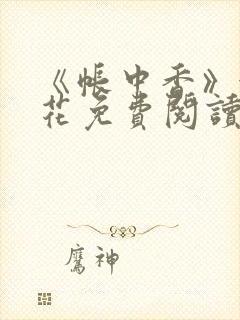 《帳中香》
花免費閱讀
鷹神